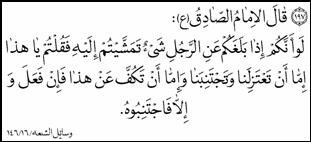 ١٩٧ قَالَ الْإِمَامُ الصَّادِقُ (ع):
لَوْ أَنَّكُمْ إِذَا بَلَغَكُمْ عَنِ الرَّجُلِ شَيْءٌ تَمَشَّيْتُمْ إِلَيْهِ فَقُلْتُمْ يَا هٰذَا
إِمَّا أَنْ تَعْتَزِلَنَا وَتَجْتَنِبَنَا وَإِمَّا أَنْ تَكُفَّ عَنْ هٰذَا فَإِنْ فَعَلَ وَ
إِلَّا فَاجْتَنِبُوهُ.
وسائل الشيعه/١٤٦/١٦